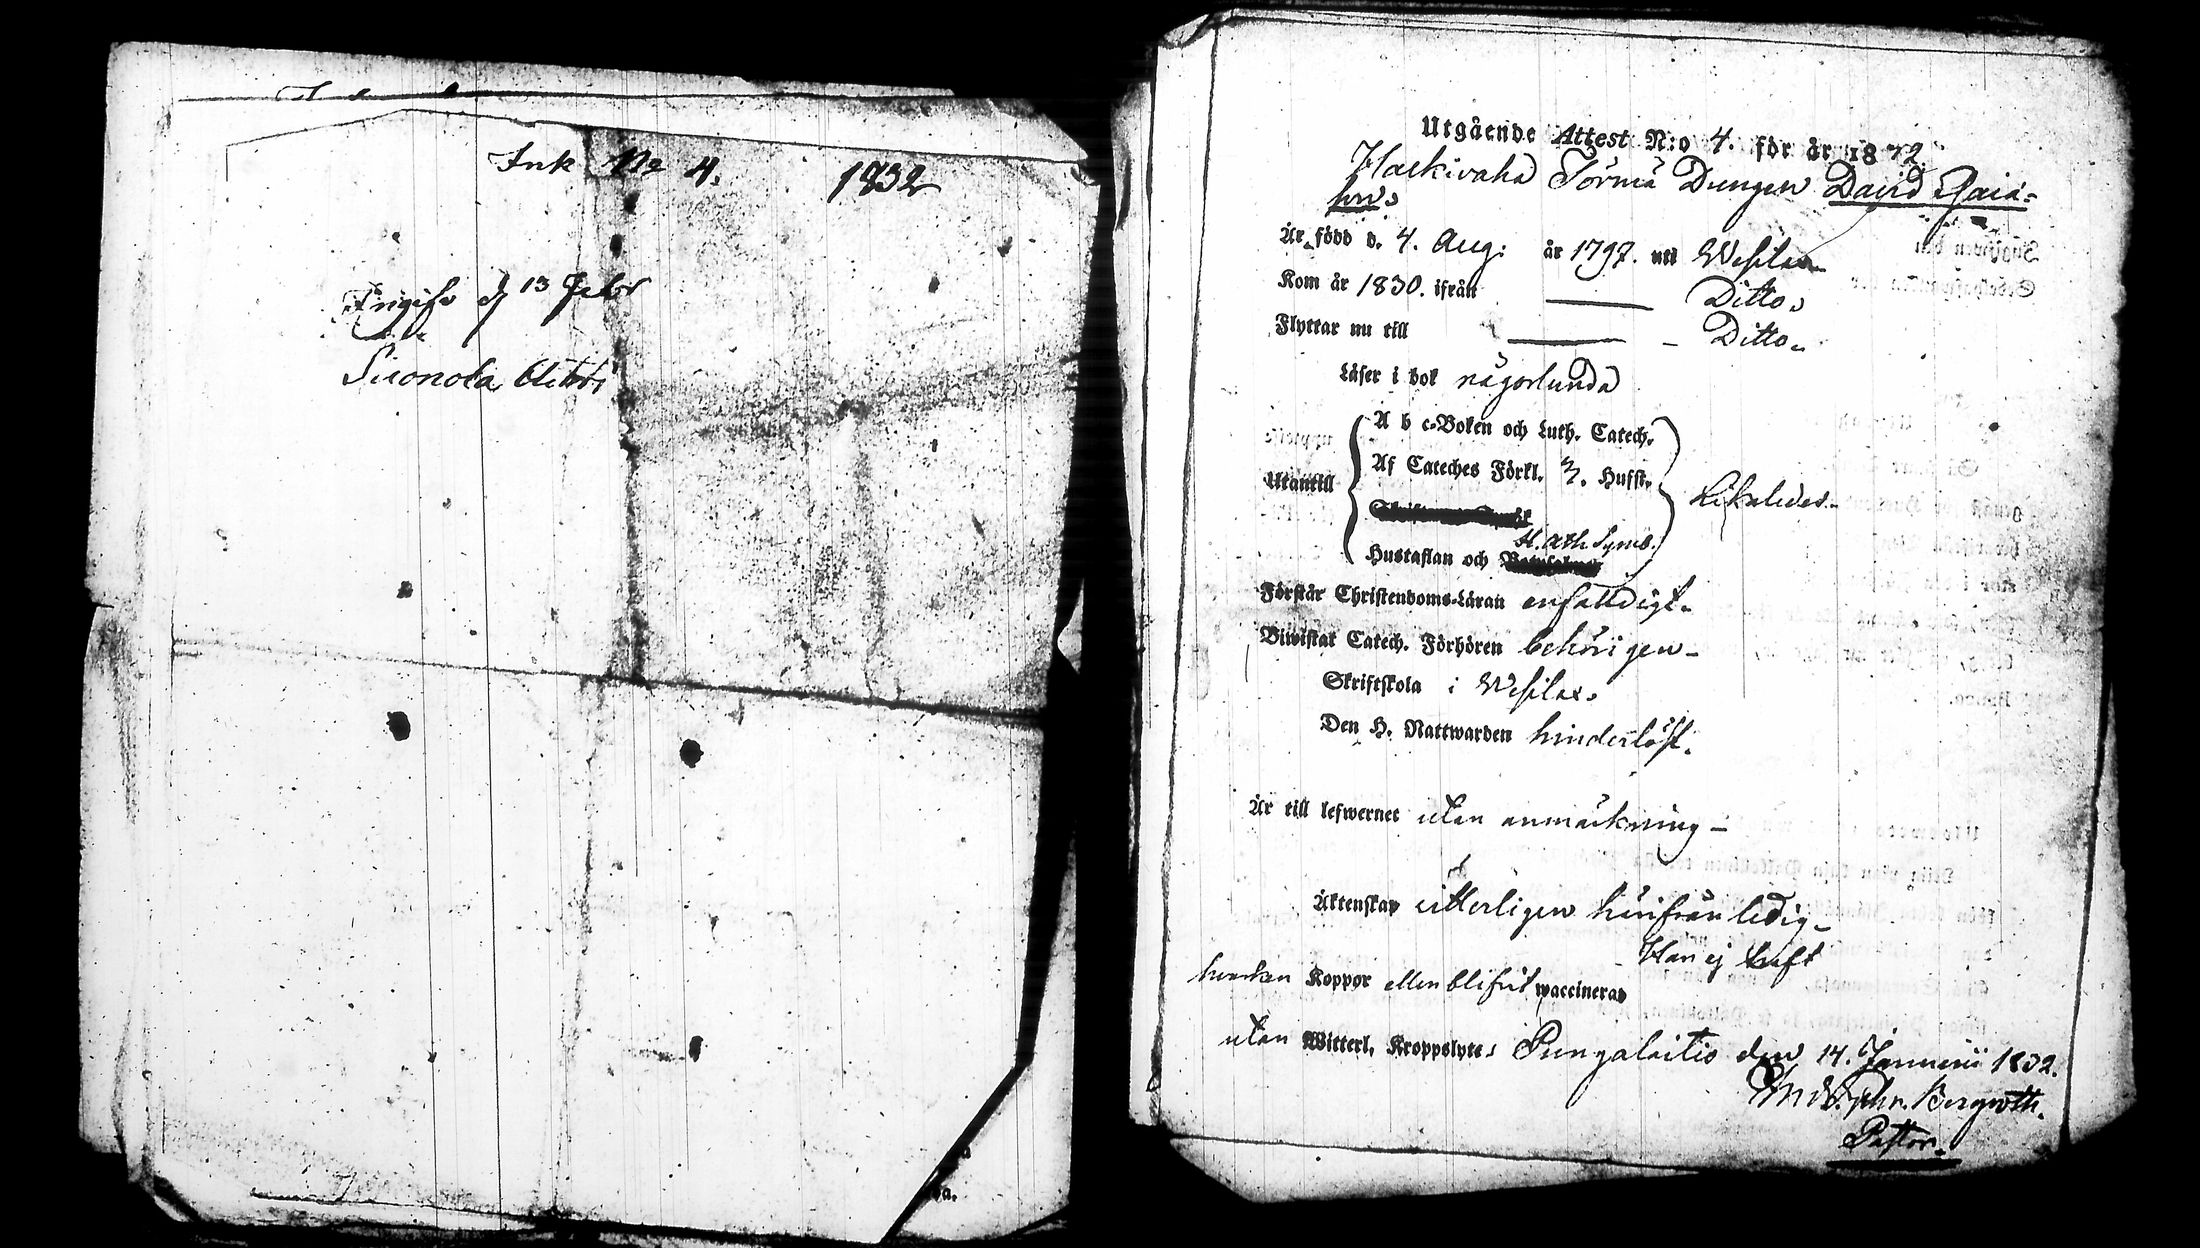 Ink No 4. 1832
Ingifv d 13 Febr
Suonola
Utgående Attest N:o 4. för år 1832
Hackivaha Törmä Drengen David Gaia-
son.
Är född d. 4. Aug: år 1797. uti Wesilax
Kom år 1830. ifrån — Ditto.
Flyttar nu till — Ditto.
Läser i bok någorlunda
A b c-Boken och Luth. Catech.
Af Cateches Förkl. 3. Hufst.
Utantill
likaledes.
H. Ath. Symb.
Hustaflan och
Förstår Christendoms-Läran enfaldigt.
Biwistat Catech. Förhören behörigen
Skriftskola i Wesilax.
Den H. Nattwarden hinderlöst.
Är till lefwernet utan anmärkning
Äktenskap witterligen härifrån ledig
Han ej haft
hvarken Koppor eller blifvit waccinerad
utan Witterl. Kroppslyte. Pungalaitio den 14. Januarii 1832.
Bergroth.
Pastor.